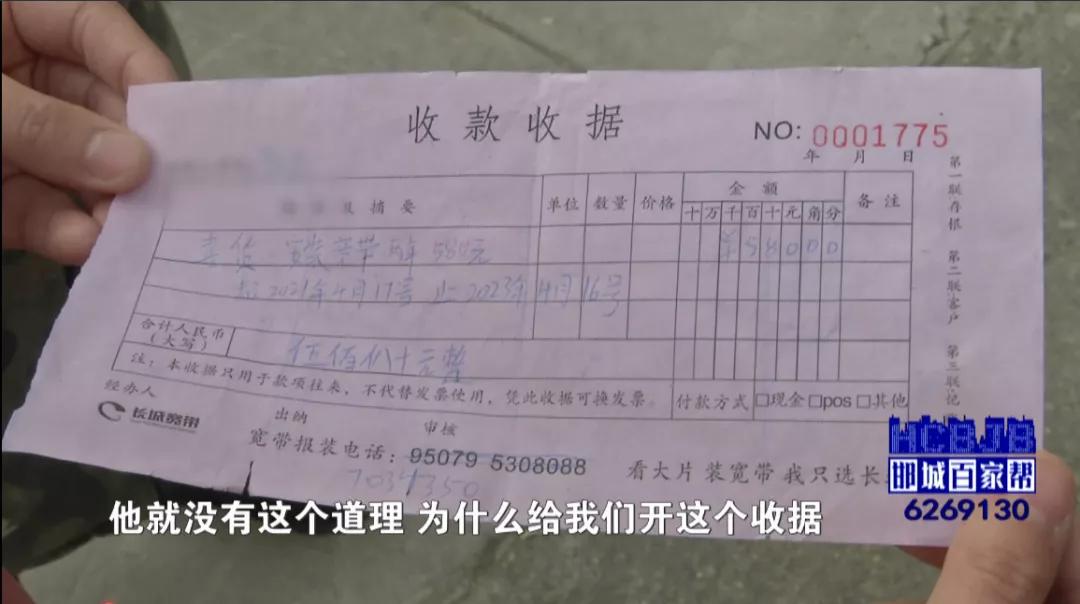 收款收据
NO: 0001775
年 月 日
第一联存根 第二联客户 第三联记
摘要 单位 数量 价格 金额 备注
十 万 千 百 十 元 角 分
宽带两年 580元 ¥58000
起2021年4月17号 止2023年4月16号
合计人民币
(大写)
伍佰八十元整
注：本收据只用于款项往来，不代替发票使用，凭此收据可换发票。
付款方式 □现金 □pos □其他
经办人 出纳 审核
长城宽带
宽带报装电话：95079 5308088
看大片 装宽带 我只选长
7034350
HCBJB
邯城百家帮
6269130
他就没有这个道理 为什么给我们开这个收据